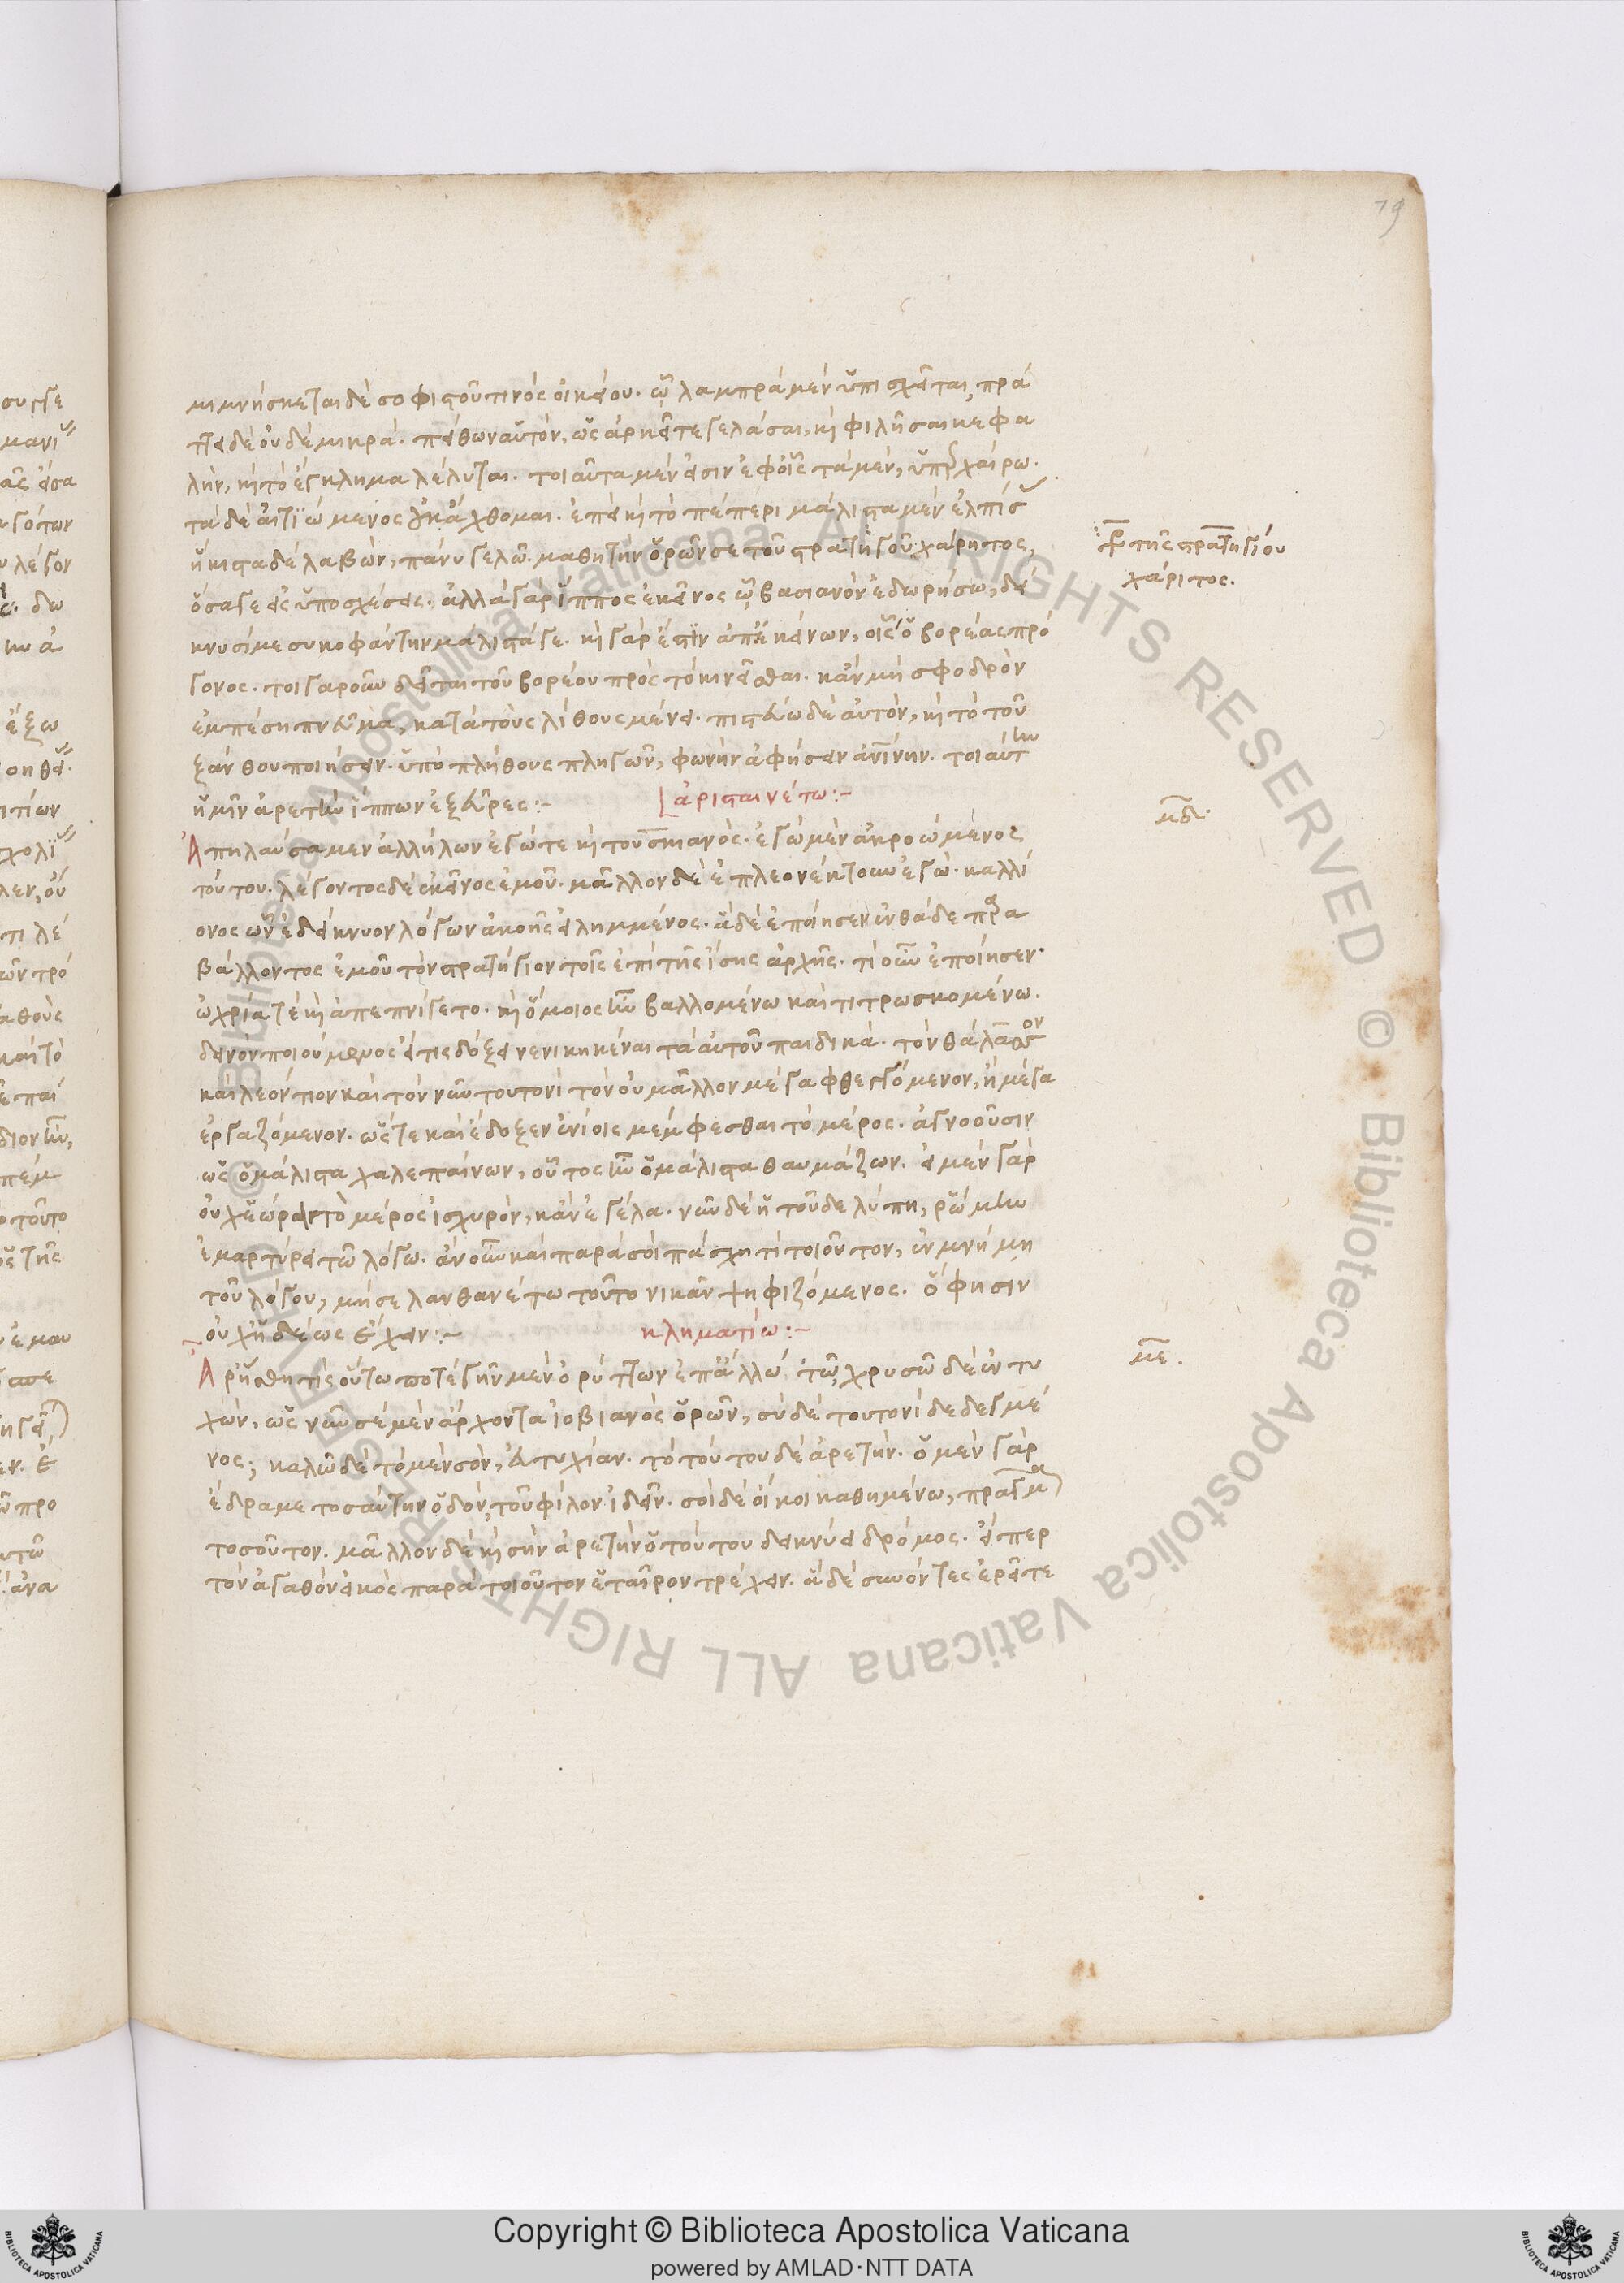 79
μιμνήσκεται δὲ σοφιστοῦ τινὸς οἰκείου. ᾧ λαμπρὰ μὲν ὑπισχνεῖται, πρά
τὰ δὲ οὐδὲ μικρά. πείθων αὐτὸν, ὡς ἀρκεῖ τε γελάσαι, καὶ φιλῆσαι κεφα
λὴν, καὶ τὸ ἔγκλημα λέλυται. τοιαῦτα μέν εἰσιν ἐφ' οἷς τὰ μὲν, ὑπερχαίρω.
τὰ δὲ αἰτιώμενος οὐκ ἄχθομαι. ἐπεὶ καὶ τὸ πέπερι μάλιστα μὲν ἐλπίσ
ἥκιστα δὲ λαβὼν, πάνυ γελῶ. μαθητὴν ὁρῶν σε τοῦ στρατηγοῦ χάρητος,
ὅσα γε εἰς ὑποσχέσεις. ἀλλὰ γὰρ ἵππος ἐκεῖνος ᾧ βασιανὸν ἐδωρήσω, δεί
κνυσί με συκοφάντην μάλιστά γε. καὶ γάρ ἐστιν ἀπ' ἐκείνων, οἷς ὁ βορέας πρό
γονος. τοιγαροῦν δεῖται τοῦ βορέου πρὸς τὸ κινεῖσθαι. κἂν μὴ σφοδρὸν
ἐμπέση πνεῦμα, κατὰ τοὺς λίθους μένει. πιστεύω δὲ αὐτὸν, καὶ τὸ τοῦ
ξάνθου ποιήσειν. ὑπὸ πλήθους πληγῶν, φωνὴν ἀφήσειν ἀνίνην. τοιαύτην
ἡμῖν ἀρετὴν ἵππων ἐξεῦρες:-
ἀρισταινέτω:-
Ἀπηλαύσαμεν ἀλλήλων ἐγώ τε καὶ τουσκιανός. ἐγὼ μὲν ἀκροώμενος
τούτου. λέγοντος δὲ ἐκεῖνος ἐμοῦ. μᾶλλον δὲ ἐπλεονέκτουν ἐγώ. καλλί
ονος ὧν ἐδείκνυον λόγων ἀκοῆς εἰλημμένος. ἃ δὲ ἐποίησεν ἐνθάδε παρα
βάλλοντος ἐμοῦ τὸν στρατήγιον τοῖς ἐπὶ τῆς ἴσης ἀρχῆς. τί οὖν ἐποίησεν.
ὠχρία τὲ καὶ ἀπεπνίγετο. καὶ ὅμοιος ἦν βαλλομένω καὶ τιτρωσκομένω.
δεινὸν ποιούμενος εἴ τις δόξει νενικηκέναι τὰ αὐτοῦ παιδικά. τὸν θάλασσον
καὶ λεόντιον καὶ τὸν νῦν τουτονὶ τὸν οὐ μᾶλλον μέγα φθεγγόμενον, ἢ μέγα
ἐργαζόμενον. ὥστε καὶ ἔδοξεν ἐνίοις μέμφεσθαι τὸ μέρος. ἀγνοοῦσιν
ὡς ὁ μάλιστα χαλεπαίνων, οὗτος ἦν ὁ μάλιστα θαυμάζων. εἰ μὲν γὰρ
οὐχ ἑώρα τὸ μέρος ἰσχυρὸν, κἂν ἐγέλα. νῦν δὲ ἡ τοῦδε λύπη, ῥώμην
ἐμαρτύρει τῶ λόγω. ἂν οὖν καὶ παρὰ σοὶ πάσχη τι τοιοῦτον, ἐν μνήμη
τοῦ λόγου, μή σε λανθανέτω τοῦτο νικᾶν ψηφιζόμενος. ὅ φησιν
οὐχ ἡδέως ἔχειν:-
κληματίω:-
Ἆρ' ἥσθη τὶς οὕτω ποτὲ γῆν μὲν ὀρύττων ἐπ' ἄλλω τῶ, χρυσῶ δὲ ἐντυ
χὼν, ὡς νῦν σὲ μὲν ἄρχοντα ἰοβιανὸς ὁρῶν, σὺ δὲ τουτονὶ δεδεγμέ
νος; καλῶ δὲ τὸ μὲν σὸν, εὐτυχίαν. τὸ τούτου δὲ ἀρετήν. ὁ μὲν γὰρ
ἔδραμε τοσαύτην ὁδὸν, τοῦ φίλον ἰδεῖν. σοὶ δὲ οἴκοι καθημένω, πρᾶγμα
τοσοῦτον. μᾶλλον δὲ καὶ σὴν ἀρετὴν ὁ τούτου δεικνύει δρόμος. εἴπερ
τὸν ἀγαθὸν εἰκὸς παρὰ τοιοῦτον ἑταῖρον τρέχειν. ἃ δὲ συνόντες ἐρεῖτε
τῆς στρατηγίου
χάριτος.
μδ.
με.
Copyright © Biblioteca Apostolica Vaticana
powered by AMLAD·NTT DATA